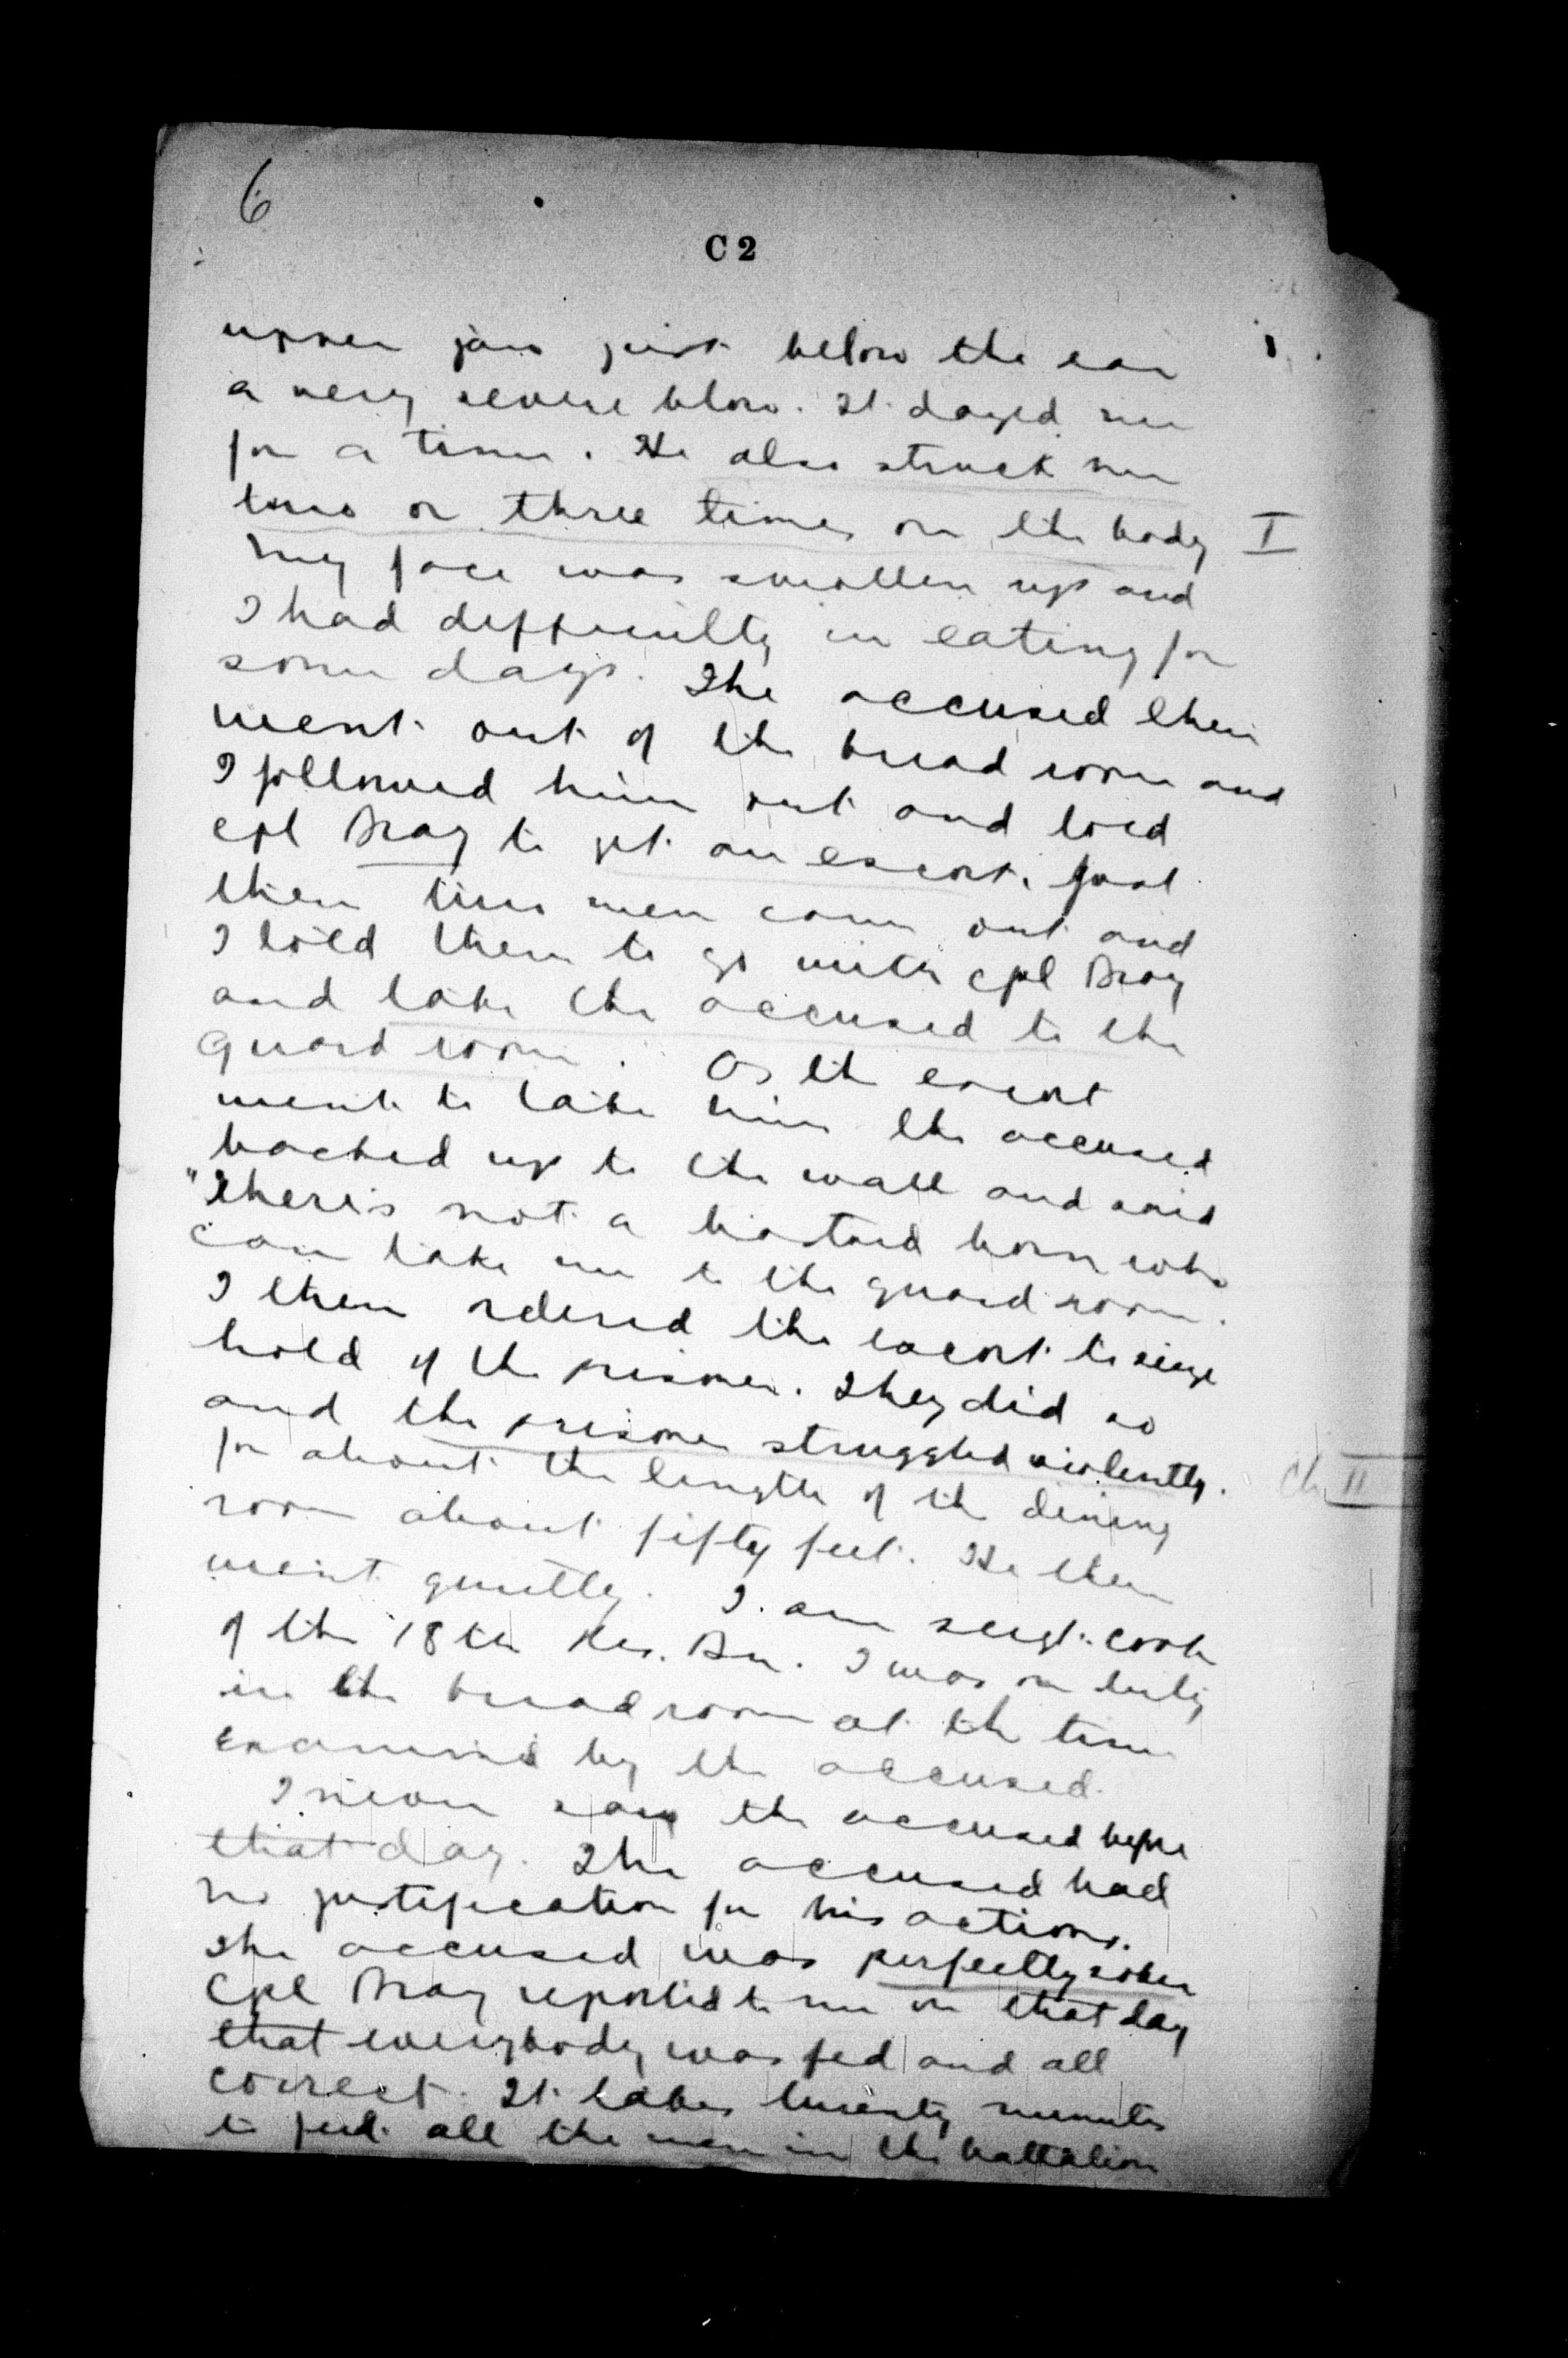 6
C 2
upper jaw just below the ear
a very severe blow. It dazed me
for a time. He also struck me
two or three times on the body I
my face was swollen up and
I had difficulty in eating for
some days. The accused then
went out of the bread room and
I followed him out and told
Cpl Bray to get an escort. Just
then two men came out and
I told them to go with Cpl Bray
and take the accused to the
guard room. As the escort
went to take him the accused
backed up to the wall and said
"There's not a bastard born who
can take me to the guard room.
I then ordered the escort to seize
hold of the prisoner. They did so
and the prisoner struggled violently. Ch II
for about the length of the dining
room about fifty feet. He then
went quietly. I am sergt. cook
of the 18th Res. Bn. I was on duty
in the bread room at the time
Examined by the accused.
I never saw the accused before
that day. The accused had
no justification for his actions.
The accused was perfectly sober
Cpl Bray reported to me on that day
that everybody was fed and all
correct. It takes twenty minutes
to feed all the men in the battalion